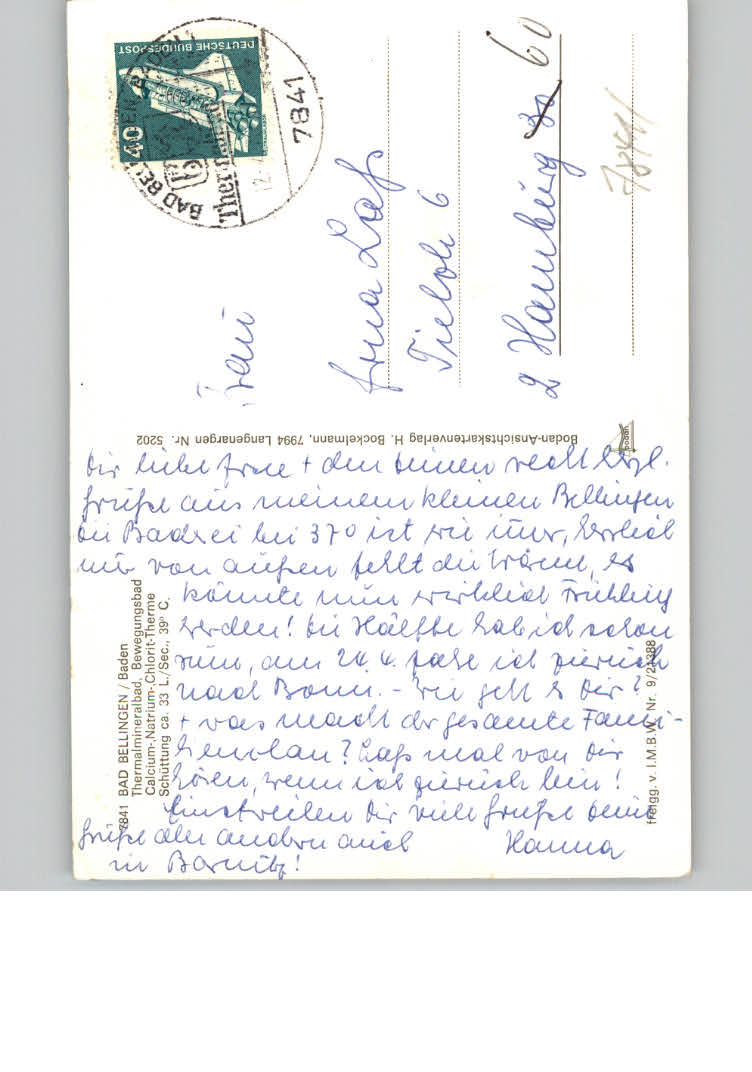 7841 BAD BELLINGEN / Baden
Thermalmineralbad, Bewegungsbad
Calcium-, Natrium-, Chlorit-Therme
Schüttung ca. 33 L./Sec., 39° C.
Dir liebe Erna + den Deinen recht herzl.
Grüße aus meinem kleinen Bellingen
die Baderei bei 37° ist wie immer, herrlich
nur von außen fehlt die Wärme, es
könnte nun wirklich Frühling
werden! Die Hälfte hab ich schon
rum, am 24.4. fahre ich zurück
nach Bonn. - Wie geht es Dir?
+ was macht der gesamte Fami-
lienclan? Laß mal von Dir
hören, wenn ich zurück bin!
Einstweilen Dir viele Grüße Deine
Hanna
Grüße allen andern auch
in Barnitz!
Bodan-Ansichtskartenverlag H. Bockelmann, 7994 Langenargen Nr. 5202
bodan
freigg. v. I.M.B.W. Nr. 9/21388
DEUTSCHE BUNDESPOST
40
7841
BAD BELLINGEN
12.
Frau
Erna Laß
Tieloh 6
2 Hamburg 30 60
7841